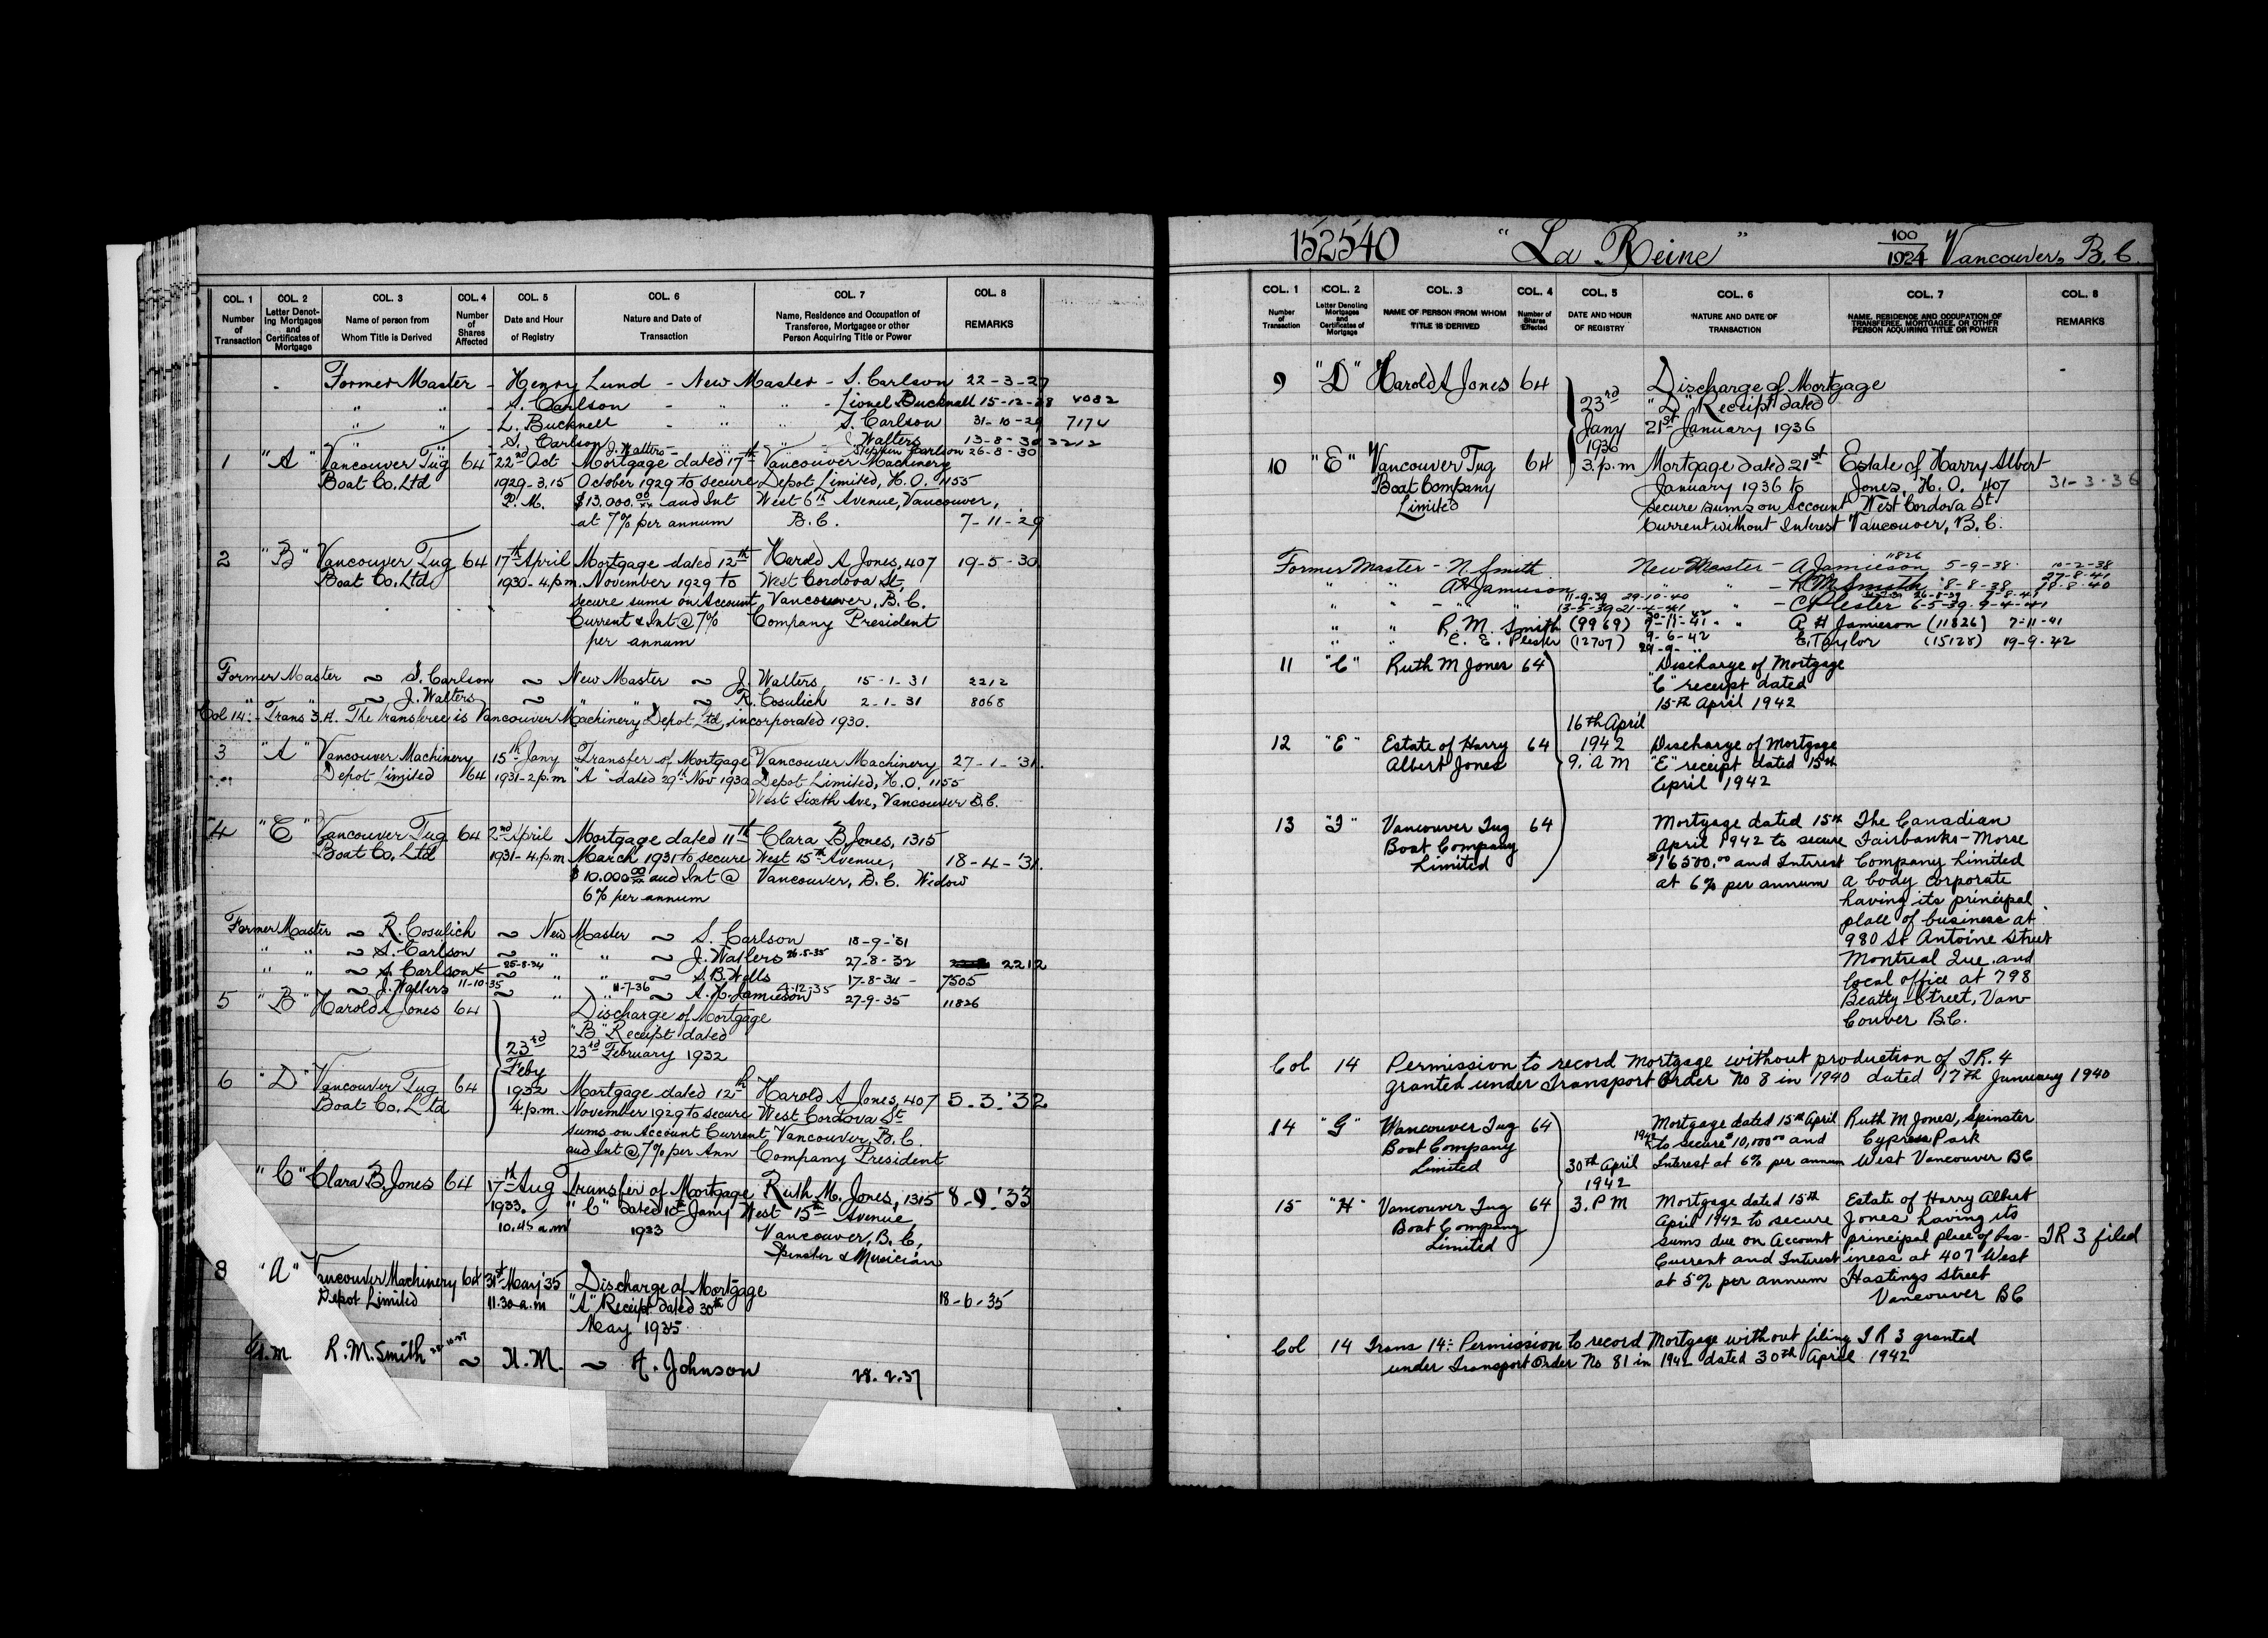 COL. 1 COL. 2 COL. 3 COL. 4 COL. 5 COL. 6 COL. 7 COL. 8
Number of Transaction
Letter Denoting Mortgages and Certificates of Mortgage
Name of person from Whom Title is Derived
Number of Shares Affected
Date and Hour of Registry
Nature and Date of Transaction
Name, Residence and Occupation of Transferee, Mortgagee or other Person Acquiring Title or Power
REMARKS
Former Master - Henry Lund - New Master - S. Carlson 22-3-27
" " - S. Carlson - " " - Lionel Bucknell 15-12-28 4082
" " - L. Bucknell - " " S. Carlson 31-10-29 7174
" " - S. Carlson - " " - J. Walters 13-8-30 2212
J. Walters - Stephen Carlson 26-8-30
1 "A" Vancouver Tug 64 22nd Oct Mortgage dated 17th Vancouver Machinery
Boat Co. Ltd 1929-3.15 October 1929 to secure Depot Limited, H.O. 1155
P.M. $13,000.00/xx and Int West 6th Avenue, Vancouver,
at 7% per annum B.C. 7-11-29
2 "B" Vancouver Tug 64 17th April Mortgage dated 12th Harold A Jones, 407 19-5-30
Boat Co. Ltd 1930-4.p.m. November 1929 to West Cordova St,
secure sums on Account Vancouver, B.C.
Current & Int @ 7% Company President
per annum
Former Master ~ S. Carlson ~ New Master ~ J. Walters 15-1-31 2212
" " ~ J. Walters ~ " " ~ R. Cosulich 2-1-31 8068
Col 14:- Trans 3.A. The transferee is Vancouver Machinery Depot Ltd, incorporated 1930.
3 "A" Vancouver Machinery 15th Jany Transfer of Mortgage Vancouver Machinery 27-1-'31.
Depot Limited 64 1931-2 p.m "A" dated 29th Nov 1930 Depot Limited, H.O. 1155
West Sixth Ave, Vancouver B.C.
4 "C" Vancouver Tug 64 2nd April Mortgage dated 11th Clara B Jones, 1315
Boat Co. Ltd 1931-4.p.m March 1931 to secure West 15th Avenue, 18-4-'31.
$10.000 00/xx and Int @ Vancouver, B.C. Widow
6% per annum
Former Master ~ R. Cosulich ~ New Master ~ S. Carlson 18-9-'31
" " ~ S. Carlson ~ " " ~ J. Walters 26-8-35 27-8-32 2212
" " ~ S. Carlson 25-8-34 ~ " " ~ S.B. Wells 17-8-34 - 7505
~ J. Walters 11-10-35 ~ " 11-7-36 " ~ A.H. Jamieson 4-12-35 27-9-35 11826
5 "B" Harold A Jones 64 Discharge of Mortgage
"B" Receipt dated
23rd 23rd February 1932
Feby
6 "D" Vancouver Tug 64 1932 Mortgage dated 12th Harold A Jones, 407 5.3.'32
Boat Co. Ltd 4.p.m. November 1929 to secure West Cordova St
sums on Account Current Vancouver, B.C.
and Int @ 7% per Ann Company President
"C" Clara B. Jones 64 17th Aug Transfer of Mortgage Ruth M. Jones, 1315 8.9.'33
1933. "C" dated 10th Jany West 15th Avenue,
10.45 a.m 1933 Vancouver, B.C,
Spinster & Musician
8 "A" Vancouver Machinery 64 31st May '35 Discharge of Mortgage
Depot Limited 11.30 a.m "A" Receipt dated 30th 18-6-35
May 1935.
R.M. Smith ~ N.M. ~ A. Johnson 28.2.37
152540 "La Reine" 100/1924 Vancouver, B.C.
COL. 1 COL. 2 COL. 3 COL. 4 COL. 5 COL. 6 COL. 7 COL. 8
Number of Transaction
Letter Denoting Mortgages and Certificates of Mortgage
NAME OF PERSON FROM WHOM TITLE IS DERIVED
Number of Shares Affected
DATE AND HOUR OF REGISTRY
NATURE AND DATE OF TRANSACTION
NAME, RESIDENCE AND OCCUPATION OF TRANSFEREE, MORTGAGEE, OR OTHER PERSON ACQUIRING TITLE OR POWER
REMARKS
9 "D" Harold A Jones 64 Discharge of Mortgage
23rd "D" Receipt dated
Jany 21st January 1936
1936
10 "E" Vancouver Tug 64 3.p.m Mortgage dated 21st Estate of Harry Albert
Boat Company January 1936 to Jones, H.O. 407 31-3-36
Limited secure sums on Account West Cordova St.
Current without Interest Vancouver, B.C.
Former Master - N. Smith New Master - A Jamieson 11826 5-9-38 10-2-38
" " AH Jamieson " - R M Smith 8-8-38 27-8-41 19-8-40
11-9-39 29-10-40 26-8-39
" " - 13-5-39 21-4-41 " - C Plester 6-5-39. 9-4-41
" " R.M. Smith (9969) 7-11-41 " A H Jamieson (11826) 7-11-41
" " C. E. Plester (12707) 9-6-42 E. Taylor (15128) 19-9-42
11 "C" Ruth M Jones 64 Discharge of Mortgage
"C" receipt dated
15th April 1942
16th April
12 "E" Estate of Harry 64 1942 Discharge of Mortgage
Albert Jones 9. A M "E" receipt dated 15th
April 1942
13 "F" Vancouver Tug 64 Mortgage dated 15th The Canadian
Boat Company April 1942 to secure Fairbanks-Morse
Limited $16500.00 and Interest Company Limited
at 6% per annum a body corporate
having its principal
place of business at
980 St Antoine Street
Montreal Que. and
local office at 798
Beatty Street, Van-
couver B.C.
Col 14 Permission to record Mortgage without production of T.R. 4
granted under Transport Order No 8 in 1940 dated 17th January 1940
14 "G" Vancouver Tug 64 Mortgage dated 15th April Ruth M Jones, Spinster
Boat Company 1942 to secure $10,000.00 and Cypress Park
Limited 30th April Interest at 6% per annum West Vancouver BC
1942
15 "H" Vancouver Tug 64 3. P M Mortgage dated 15th Estate of Harry Albert
Boat Company April 1942 to secure Jones having its
Limited sums due on Account principal place of bus- TR 3 filed
Current and Interest iness at 407 West
at 5% per annum Hastings Street
Vancouver BC
Col 14 Trans 14:- Permission to record Mortgage without filing T R 3 granted
under Transport Order No 81 in 1942 dated 30th April 1942